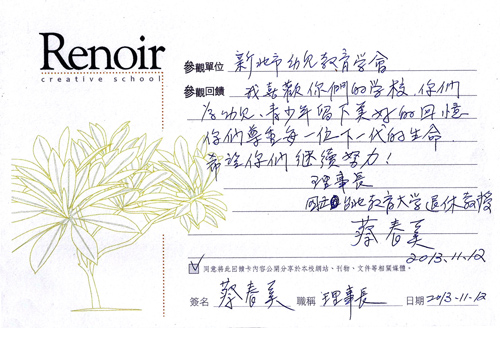 Renoir
creative school
參觀單位 新北市幼兒教育学會
參觀回饋 我喜歡你們的学校,你們
為幼兒、青少年留下美好的回憶
你們尊重每一位下一代的生命.
希望你們继续努力!
理事長
台北教育大学退休教授
蔡春美
2013.11.12
同意將此回饋卡內容公開分享於本校網站、刊物、文件等相關媒體。
簽名 蔡春美 職稱 理事長 日期 2013-11-12